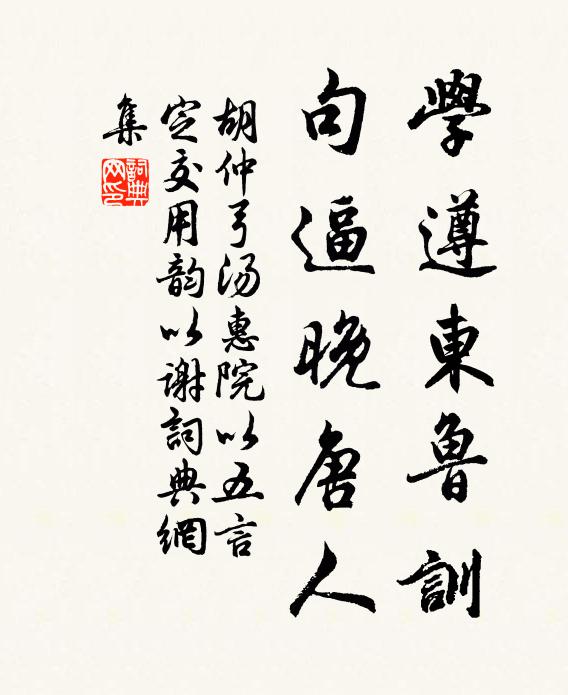 學遵東魯訓
句逼晚唐人
胡仲弓湯惠院以五言
定交用韵以谢詞典網
集
詞典網印